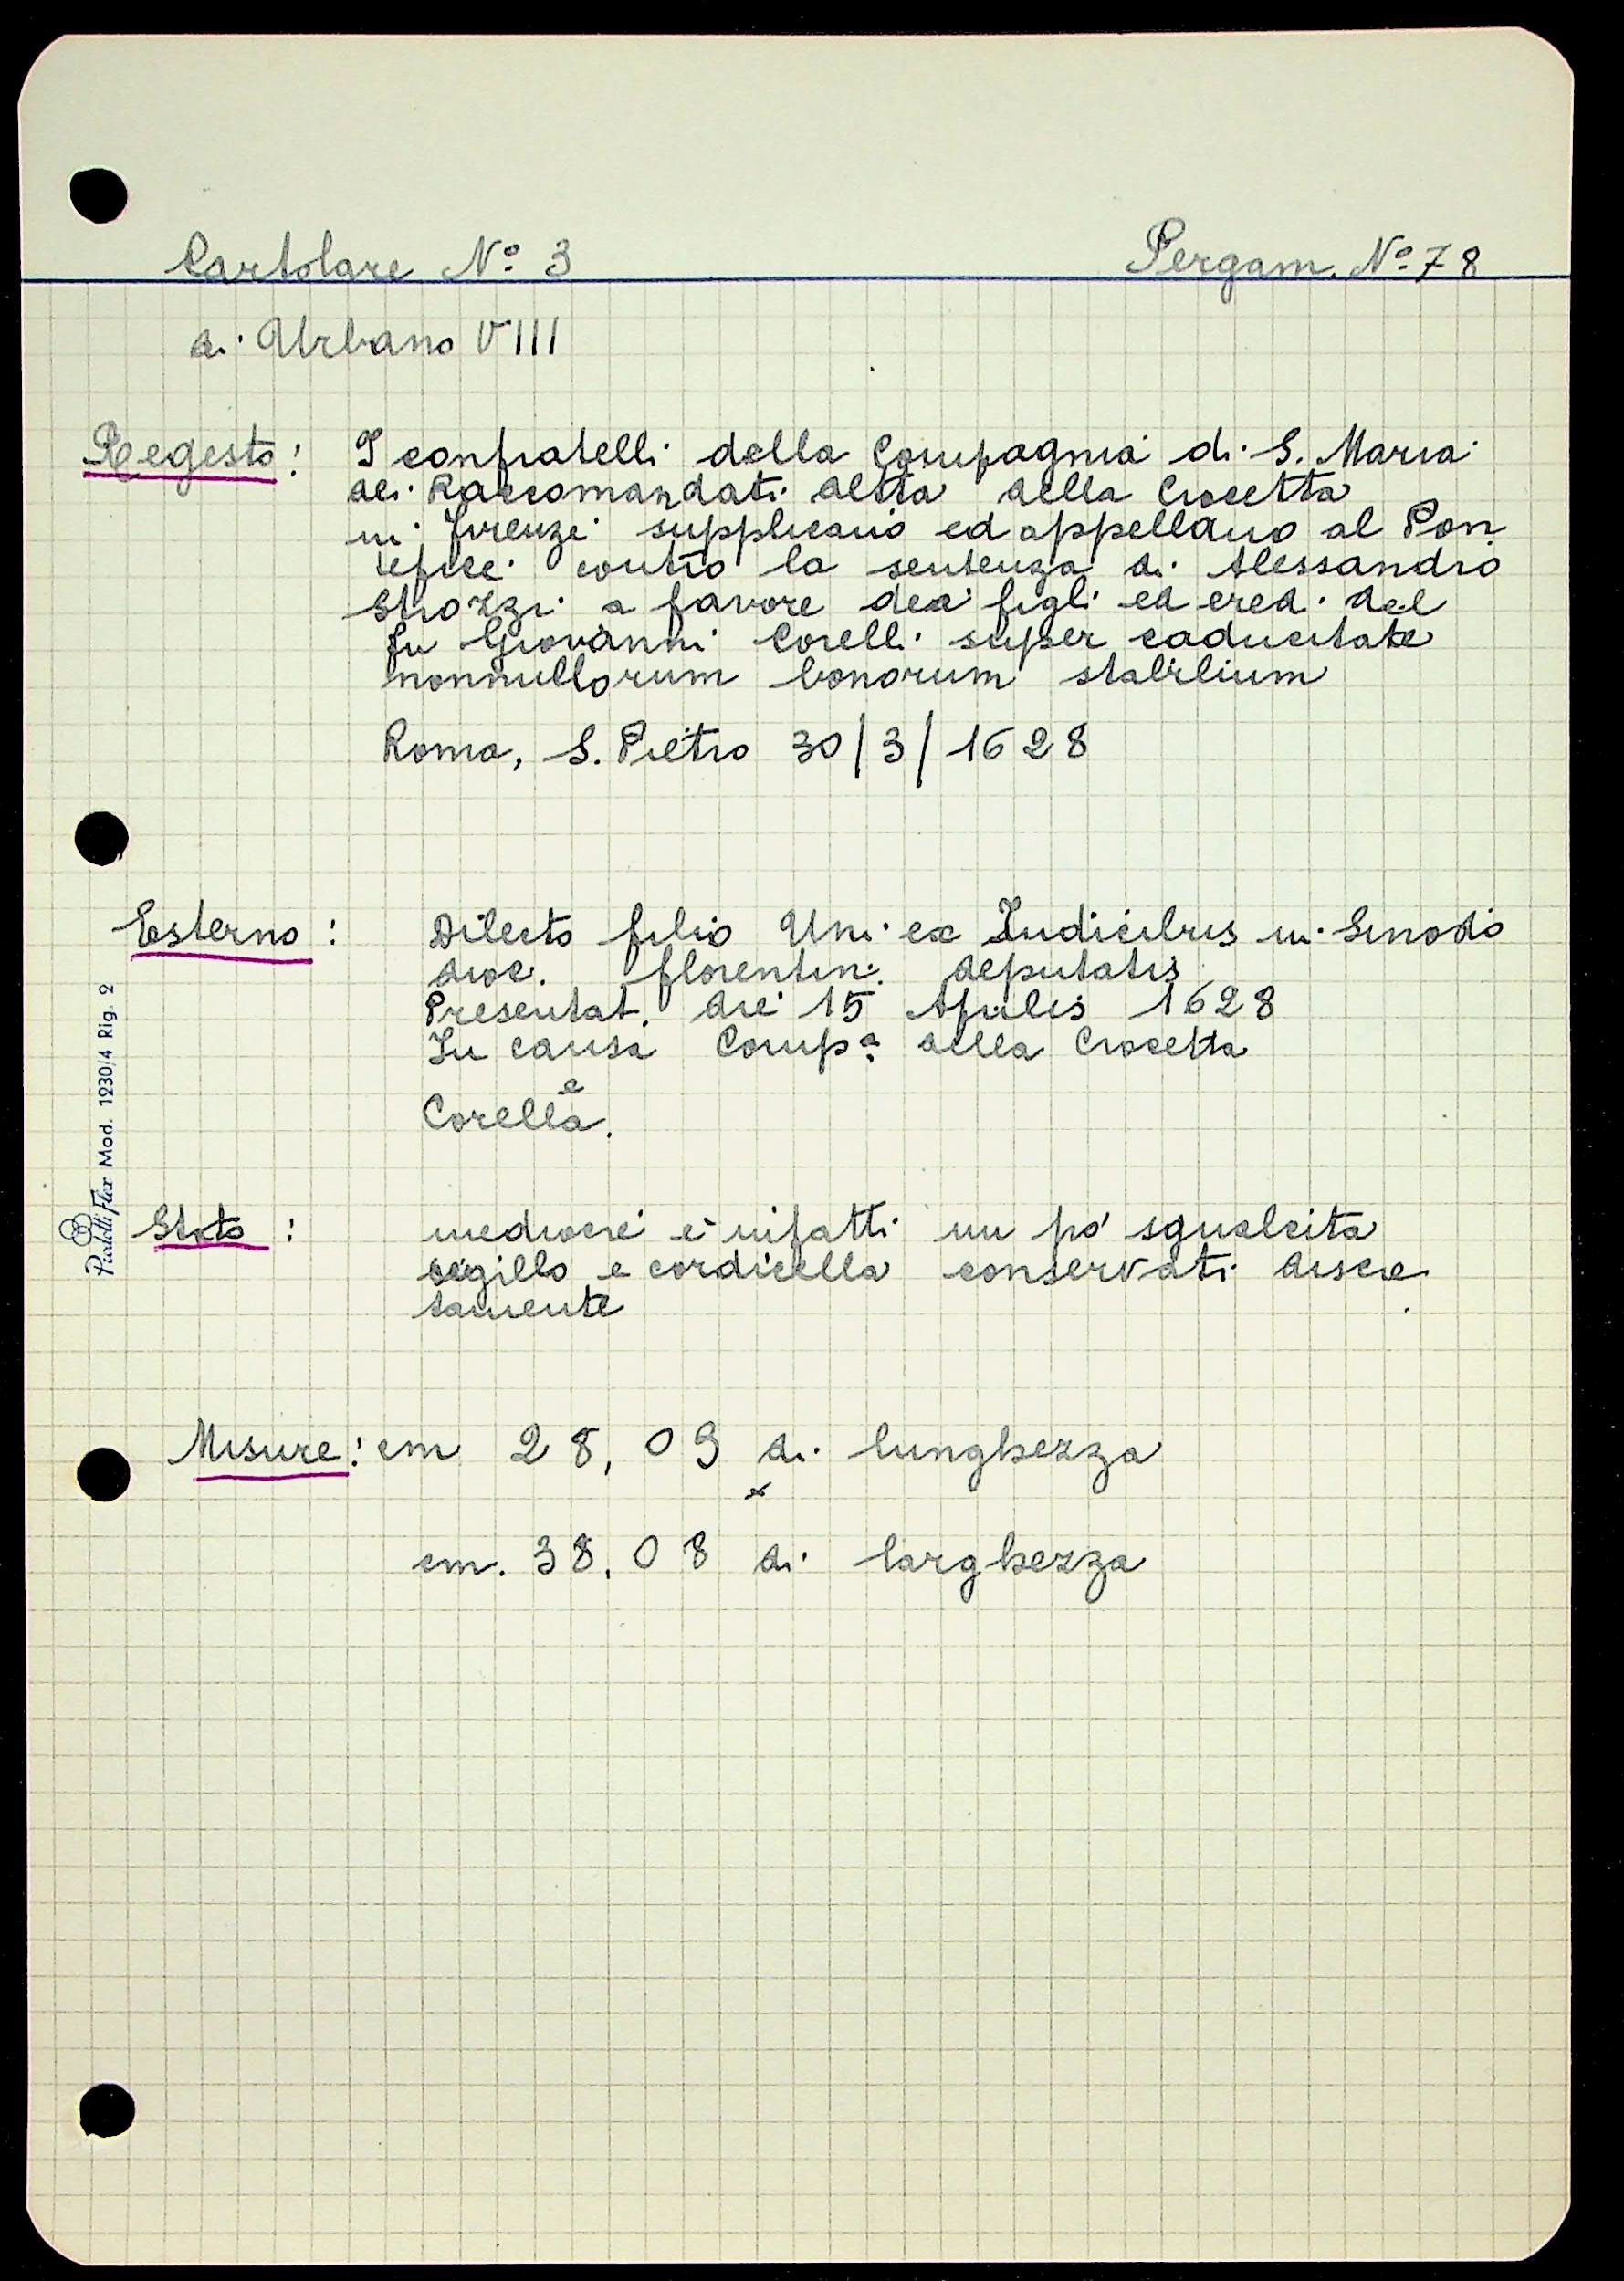 Cartolare Nº 3
Pergam. Nº 78
di Urbano VIII
Regesto: I confratelli della Compagnia di S. Maria
dei Raccomandati detta della Crocetta
in Firenze supplicano ed appellano al Pon
tefice contro la sentenza di Alessandro
Strozzi a favore dei figli ed eredi del
fu Giovanni Corelli super caducitate
nonnullorum bonorum stabilium
Roma, S. Pietro 30/3/1628
Esterno: Dilecto filio Uni ex Iudicibus in Sinodo
dioc. florentin. deputatis
Presentat. die 15 Aprilis 1628
In causa Compª della Crocetta
e
Corella.
Stato: mediocre è infatti un po' sgualcita
sigillo e cordicella conservati discre
tamente
Misure: cm 28,09 di lunghezza
x
cm. 38,08 di larghezza
Pialetti Flex Mod. 1230/4 Rig. 2